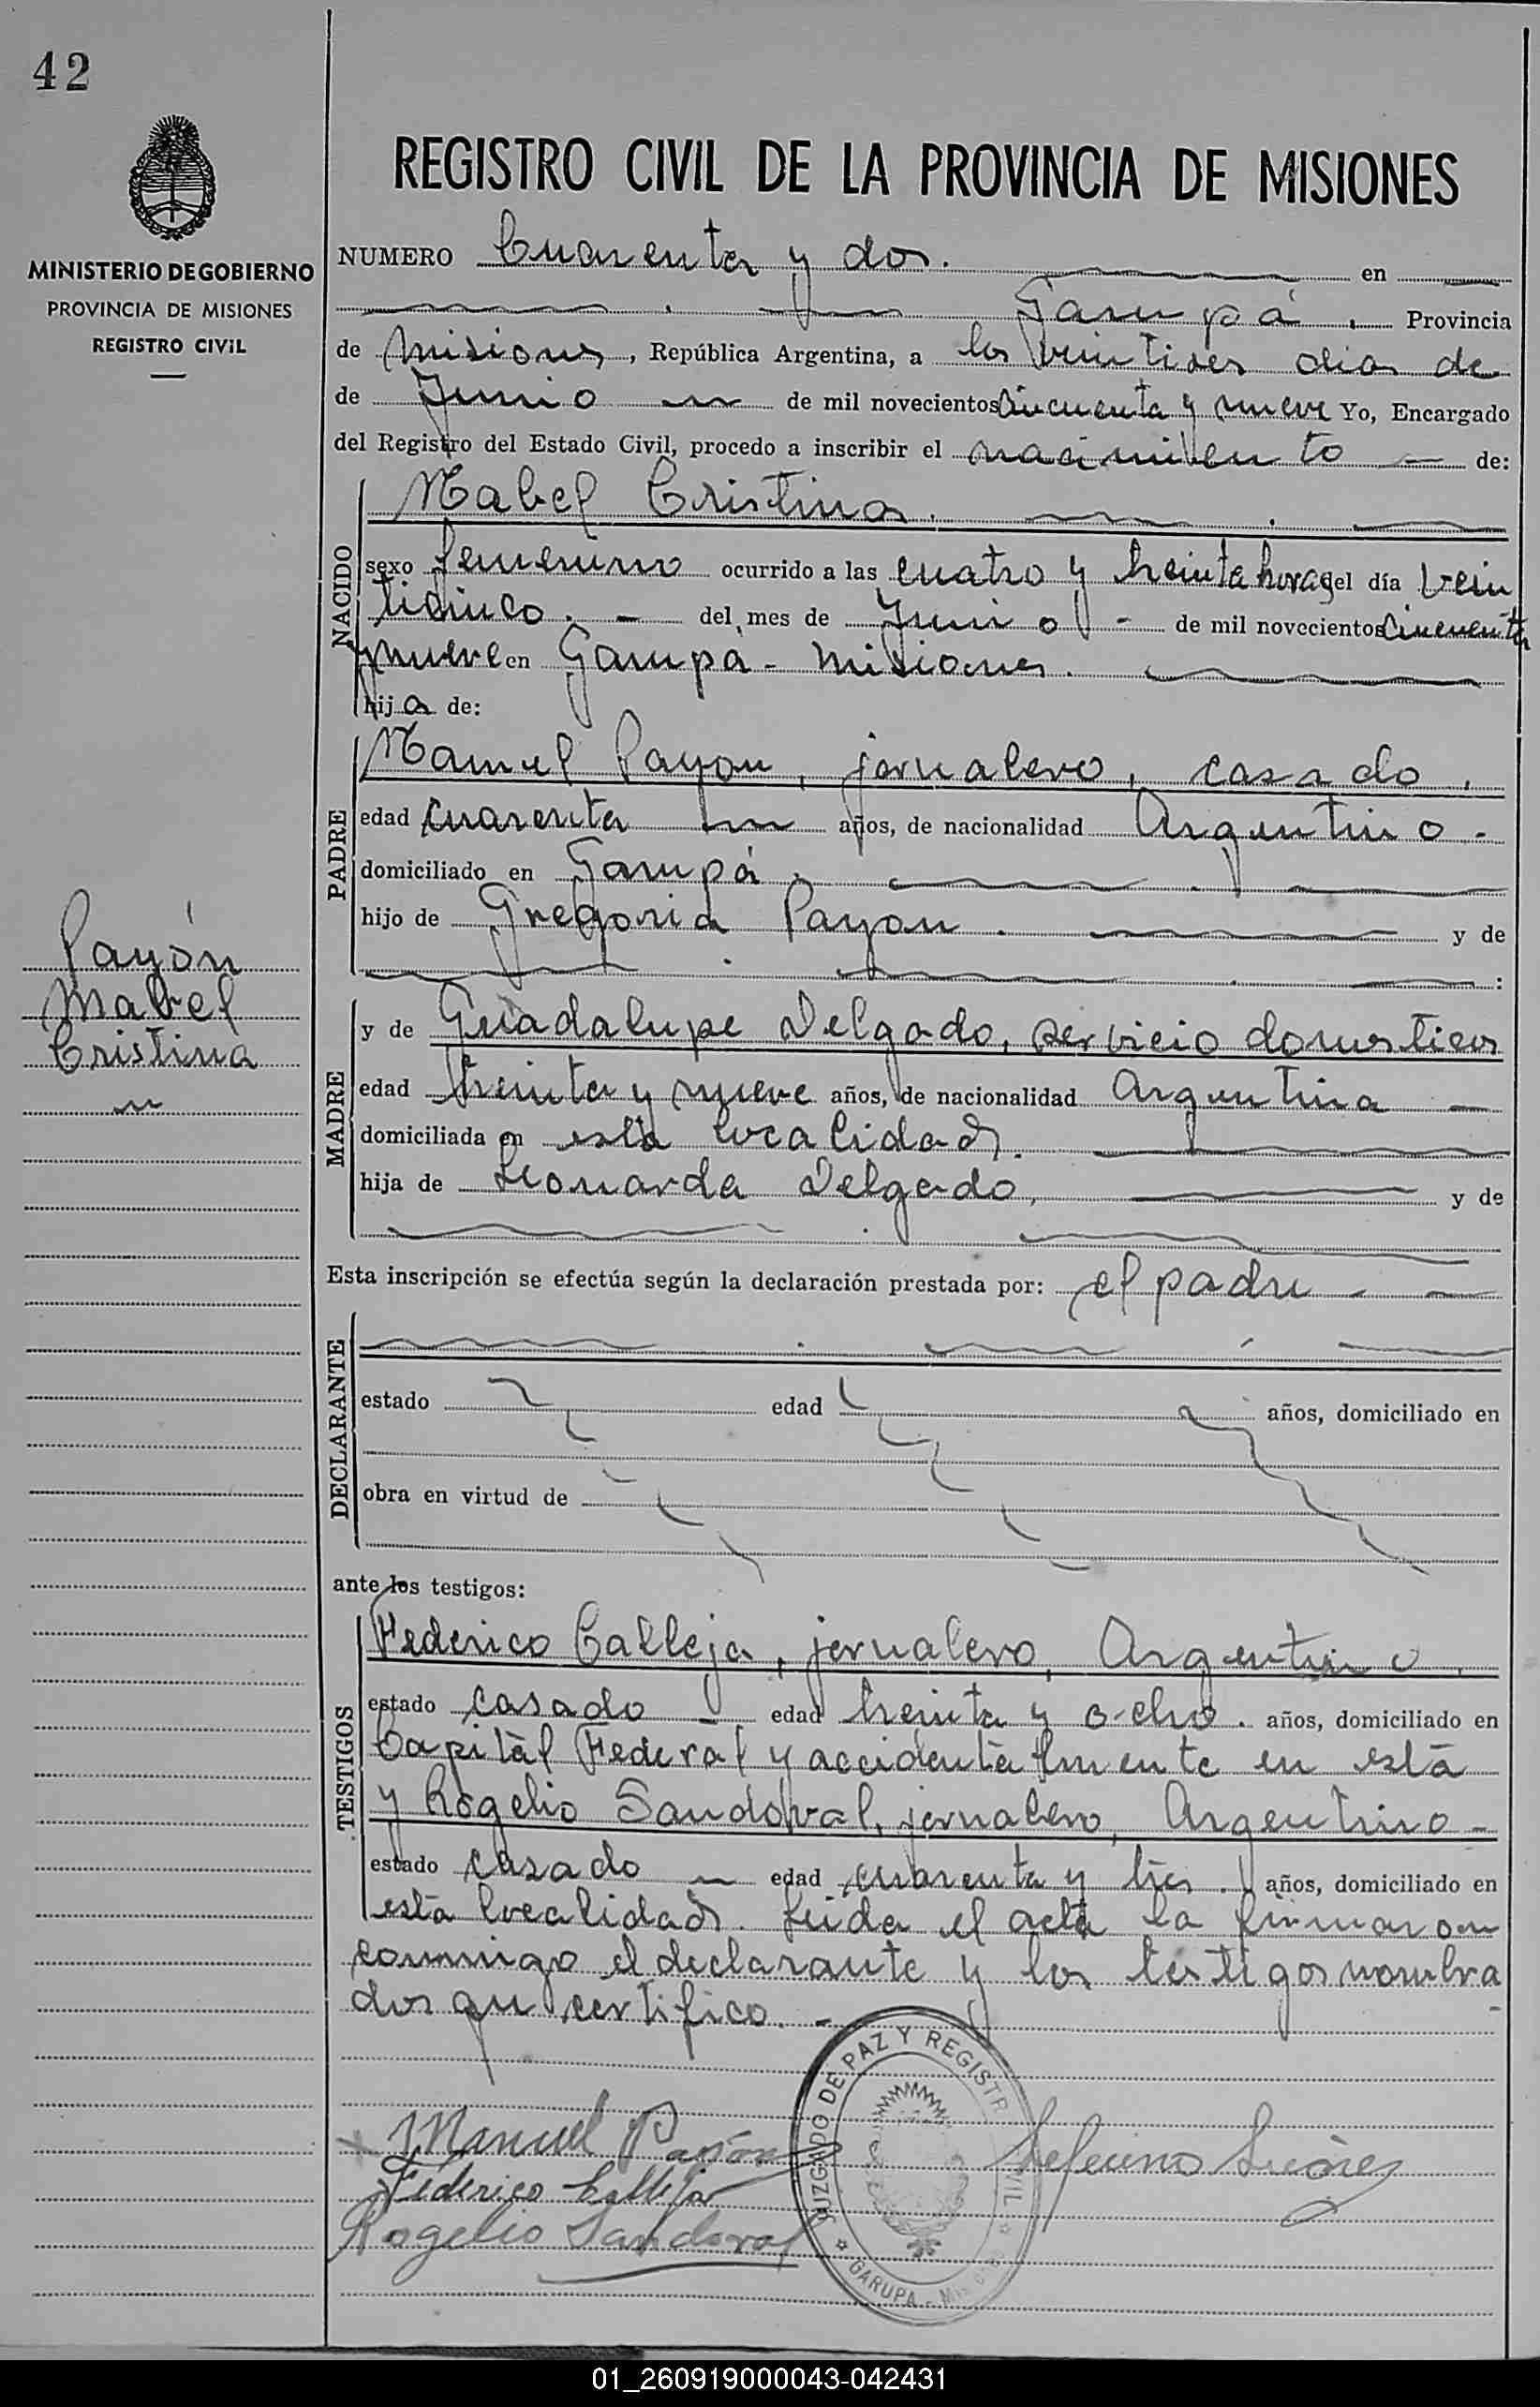 42
MINISTERIO DE GOBIERNO
PROVINCIA DE MISIONES
REGISTRO CIVIL
REGISTRO CIVIL DE LA PROVINCIA DE MISIONES
NUMERO Cuarenta y dos. en
Garupá. Provincia
de Misiones, República Argentina, a los días de
de Junio de mil novecientos cincuenta y nueve Yo, Encargado
del Registro del Estado Civil, procedo a inscribir el nacimiento de:
NACIDO
Mabel Cristina.
sexo femenino ocurrido a las cuatro y treinta horas del día vein
ticinco. - del mes de Junio - de mil novecientos cincuenta
y nueve en Garupá - Misiones.
hija de:
PADRE
Manuel Payon, jornalero, casado.
edad cuarenta años, de nacionalidad Argentino -
domiciliado en Garupá.
hijo de Gregoria Payon. y de
:
Payón
Mabel
Cristina
MADRE
y de Guadalupe Delgado, servicio domesticos
edad treinta y nueve años, de nacionalidad Argentina -
domiciliada en esta localidad.
hija de Leonarda Delgado, y de
Esta inscripción se efectúa según la declaración prestada por: el padre - -
DECLARANTE
estado edad años, domiciliado en
obra en virtud de
ante los testigos:
TESTIGOS
Federico Calleja, jornalero, Argentino.
estado casado - edad treinta y ocho. años, domiciliado en
Capital Federal y accidentalmente en esta
y Rogelio Sandoval, jornalero, Argentino -
estado casado edad cuarenta y tres. años, domiciliado en
esta localidad. Leida el acta la firmaron
conmigo el declarante y los testigos nombra
dos que certifico. -
Manuel Payón
Federico Calleja
Rogelio Sandoval
JUZGADO DE PAZ Y REGISTR CIVIL
GARUPA - Misiones